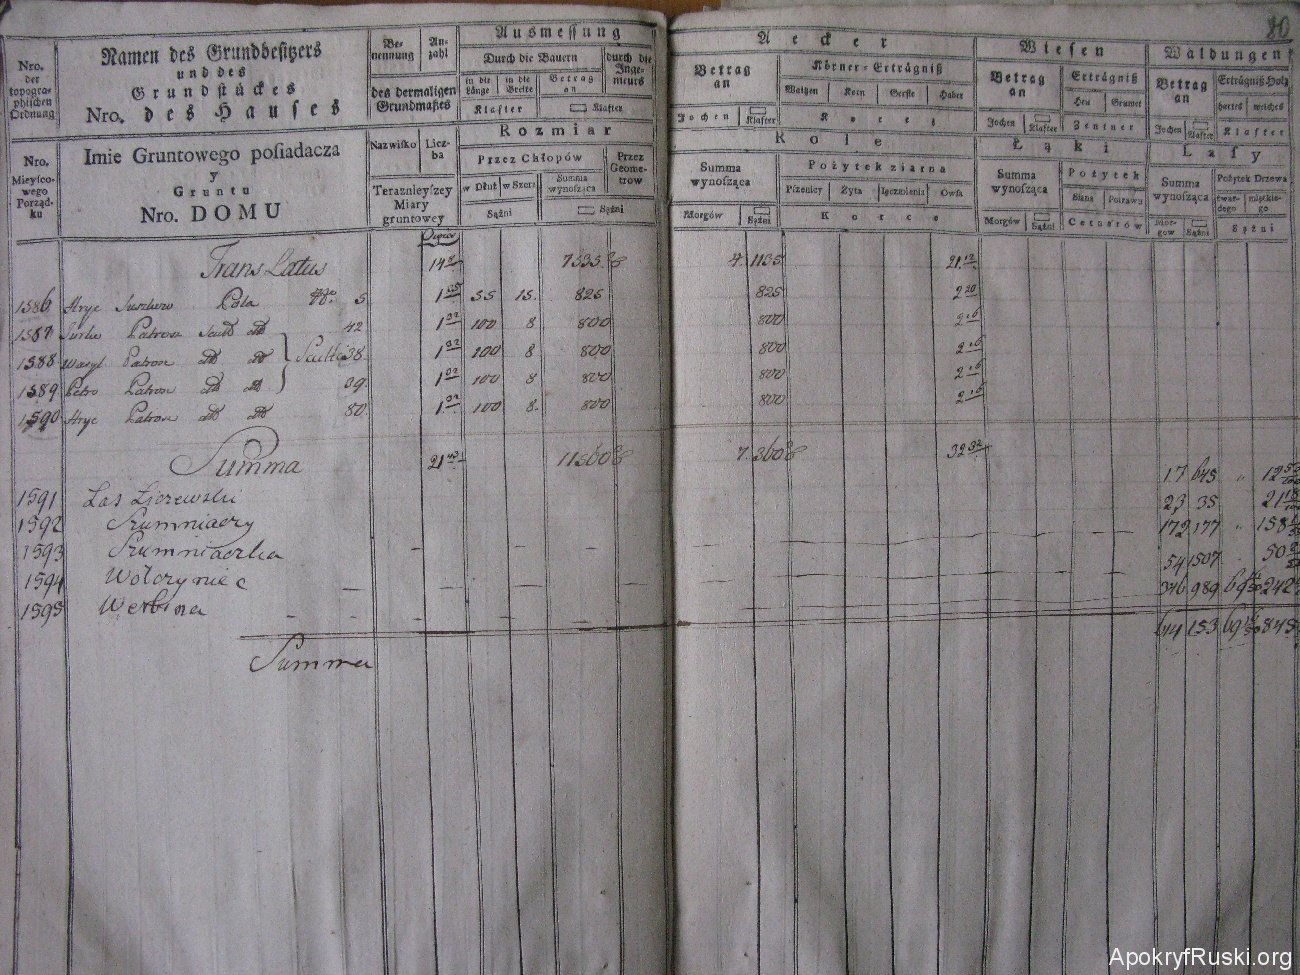 80
Nro. der topographischen Ordnung
Namen des Grundbesitzers
und des
Grundstückes
Nro. des Hauses
Benennung
Anzahl
des dermaligen Grundmaßes
Ausmessung
Durch die Bauern
durch die Ingenieurs
in die Länge
in die Breite
Betrag an
Klafter
Klafter
Aecker
Betrag an
Körner-Erträgniß
Waitzen
Korn
Gerste
Haber
Jochen
Klafter
Koretz
Wiesen
Betrag an
Erträgniß
Heu
Grumet
Jochen
Klafter
Zentner
Waldungen
Betrag an
Erträgniß Holz
hartes
weiches
Jochen
Klafter
Klafter
Nro. Mieyscowego Porządku
Imie Gruntowego posiadacza
y
Gruntu
Nro. DOMU
Nazwisko
Liczba
Teraznieyszey Miary gruntowey
Rozmiar
Przez Chłopów
Przez Geometrow
w Dłuż
w Szerz
Summa wynosząca
Sążni
Sążni
Role
Summa wynosząca
Pożytek ziarna
Pszenicy
Zyta
Jęczmienia
Owsa
Morgów
Sążni
Korce
Łąki
Summa wynosząca
Pożytek
Siana
Potrawu
Morgów
Sążni
Cetnarów
Lasy
Summa wynosząca
Pożytek Drzewa
twardego
miętkiego
Morgow
Sążni
Sążni
Trans Latus 7535 4. 1135 21
1586 Hryc 5 55 15. 825 825
1587 Patron 42 100 8 800 800
1588 Wasyl Patron 38 100 8 800 800
1589 Petro Patron 39 100 8 800 800
1590 Hryc Patron 80 100 8. 800 800
Summa 21 11560 7. 360 32
1591 Las 17 645
1592 Szumniaczy 23 35 21
1593 Szumniaczka 172 177 158
1594 Wołczyniec 54 1507 50
1595 Werbina 346 989 69 242
Summa 614 153 69 845
ApokryfRuski.org